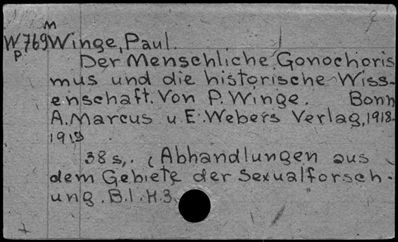 M
W769 Winge, Paul.
P. Der Menschliche Gonochoris
mus und die historische Wiss
enschaft. Von P. Winge. Bonn
A. Marcus u. E. Webers Verlag, 1918-
1919
38 s,. (Abhandlungen aus
dem Gebiete der Sexualforsch-
ung. B.I. H.3